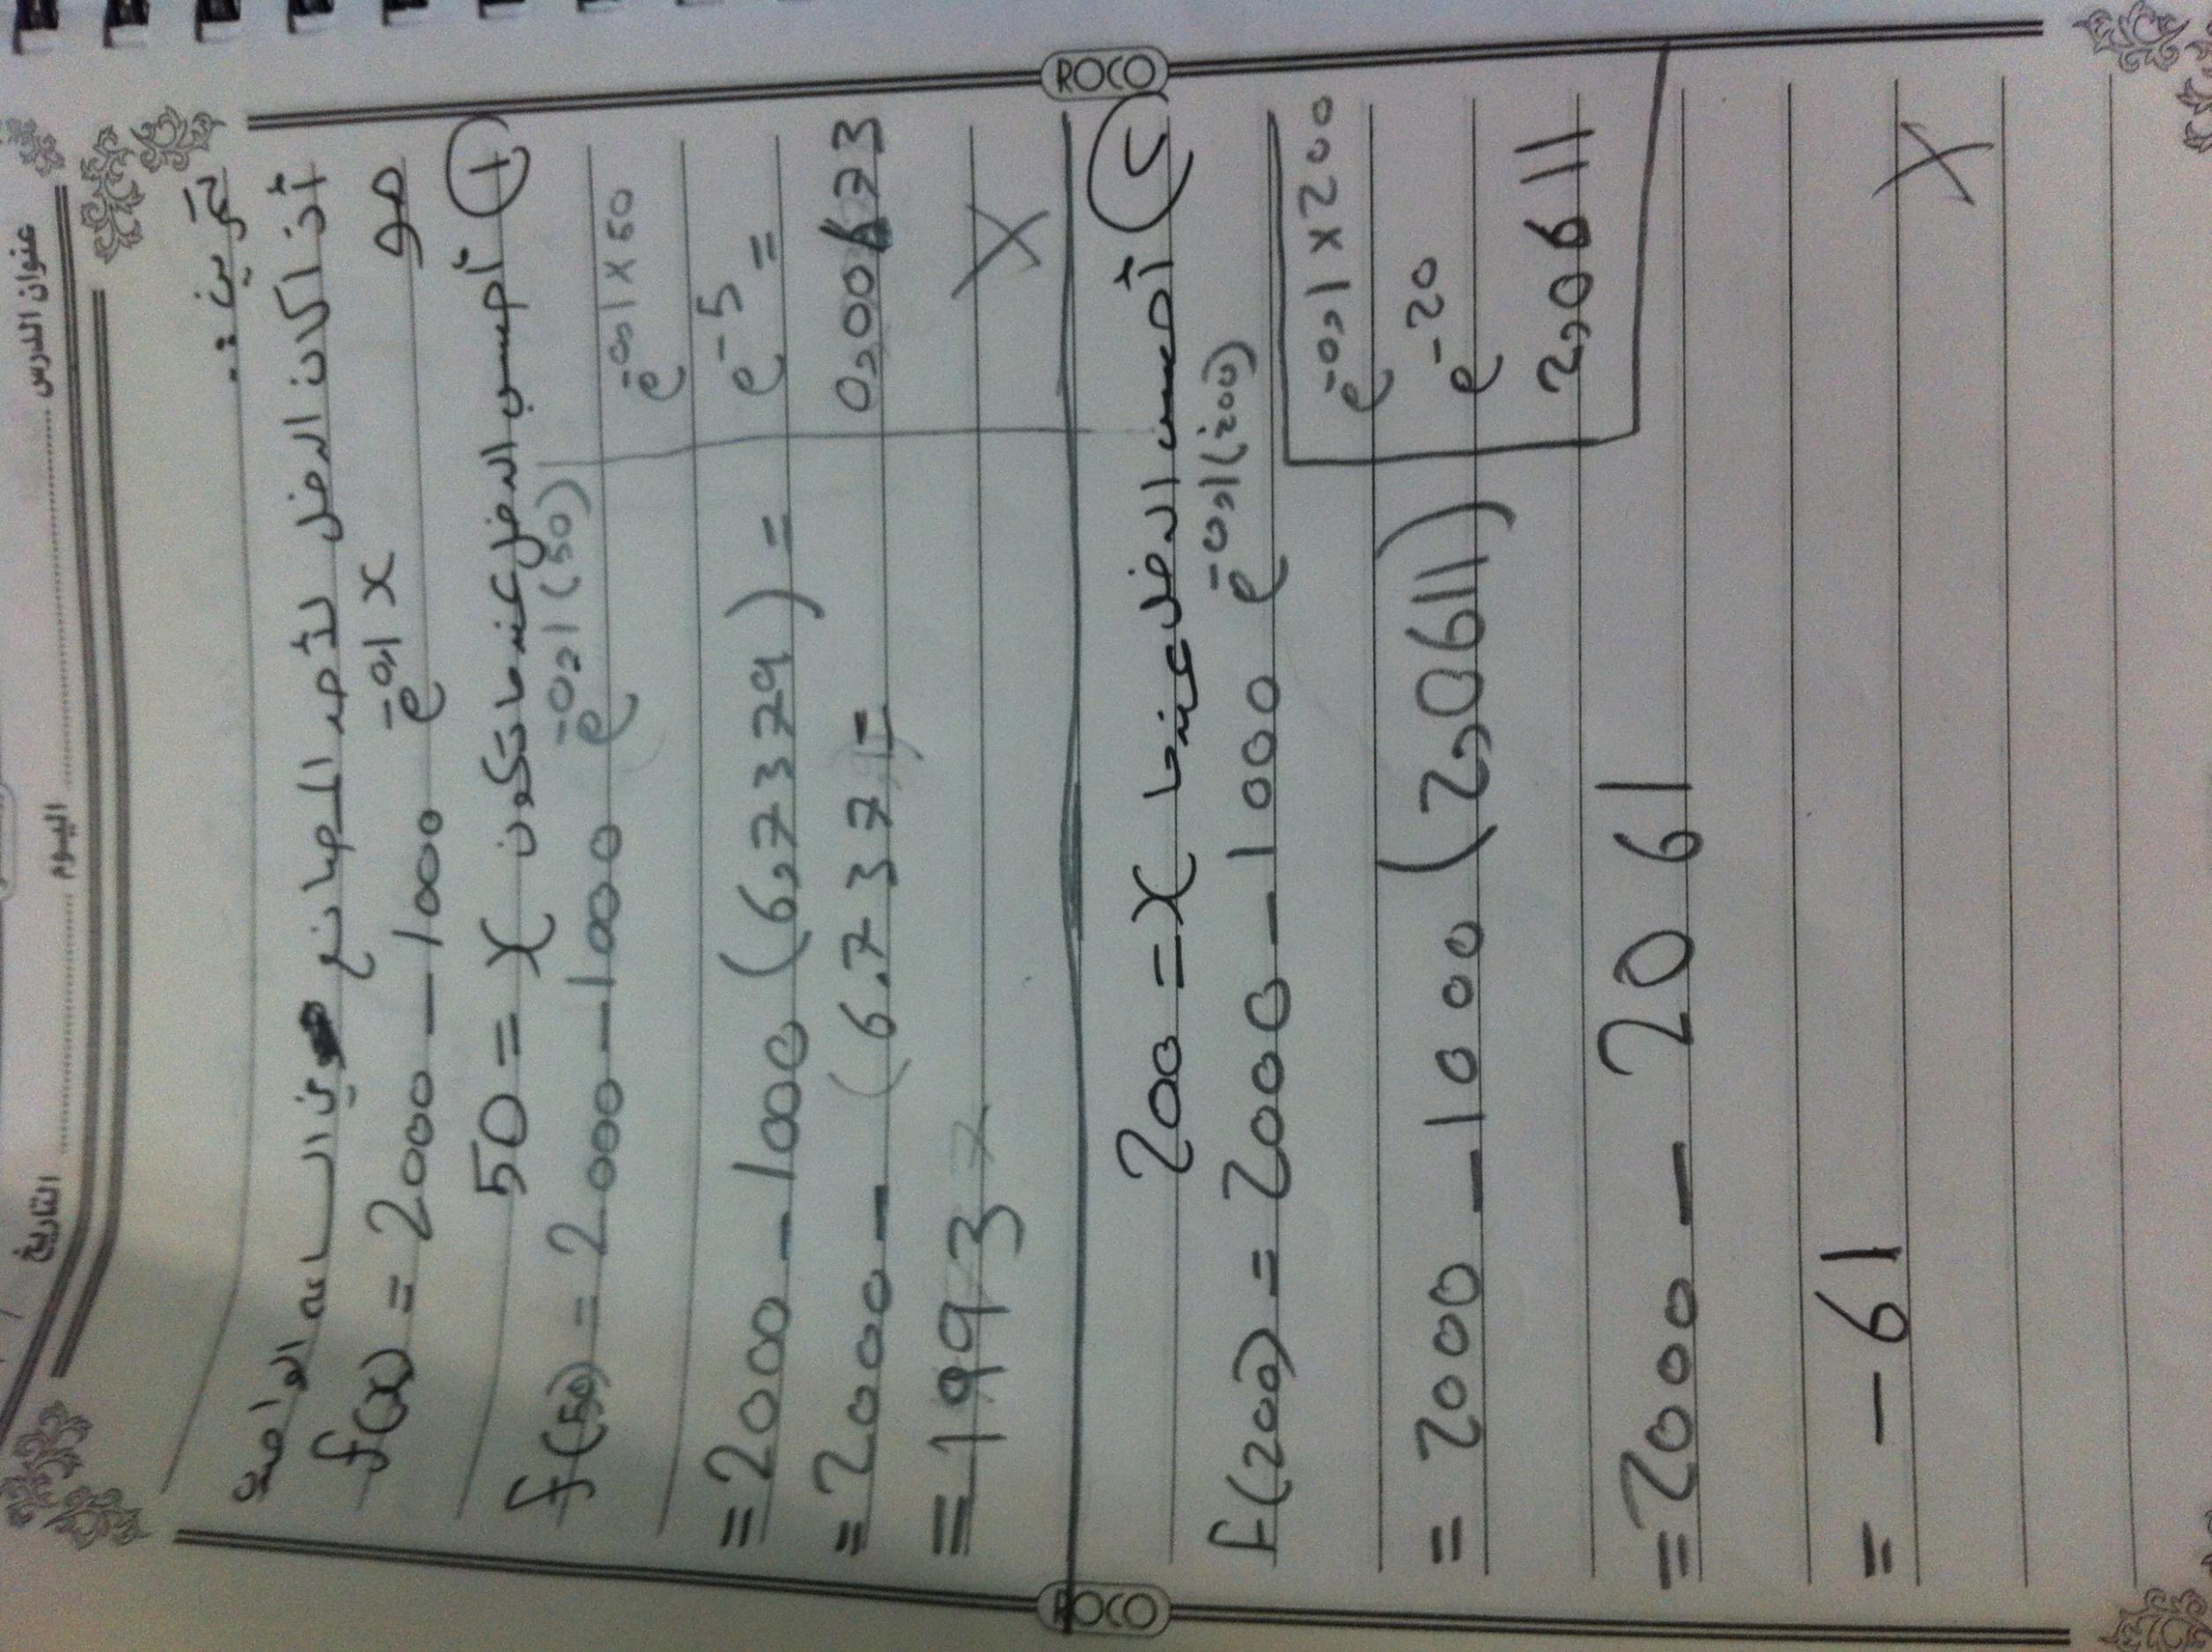 عنوان الدرس اليوم التاريخ
ROCO
تمرين :
أذا كان الدخل لأحد المصانع في الساعه الواحدة
هو
f(x) = 2000 - 1000 e^-0,1x
① أحسب الدخل عندما تكون x = 50
f(50) = 2000 - 1000 e^-0,1(50)
e^-0,1x50
= 2000 - 1000 (6,7379) =
e^-5 =
= 2000 - (6.737) =
0,00673
= 1993
x
② أحسب الدخل عندما x = 200
f(200) = 2000 - 1000 e^-0,1(200)
e^-0,1x200
= 2000 - 1000 (2,0611)
e^-20
2,0611
= 2000 - 2061
= - 61
x
ROCO